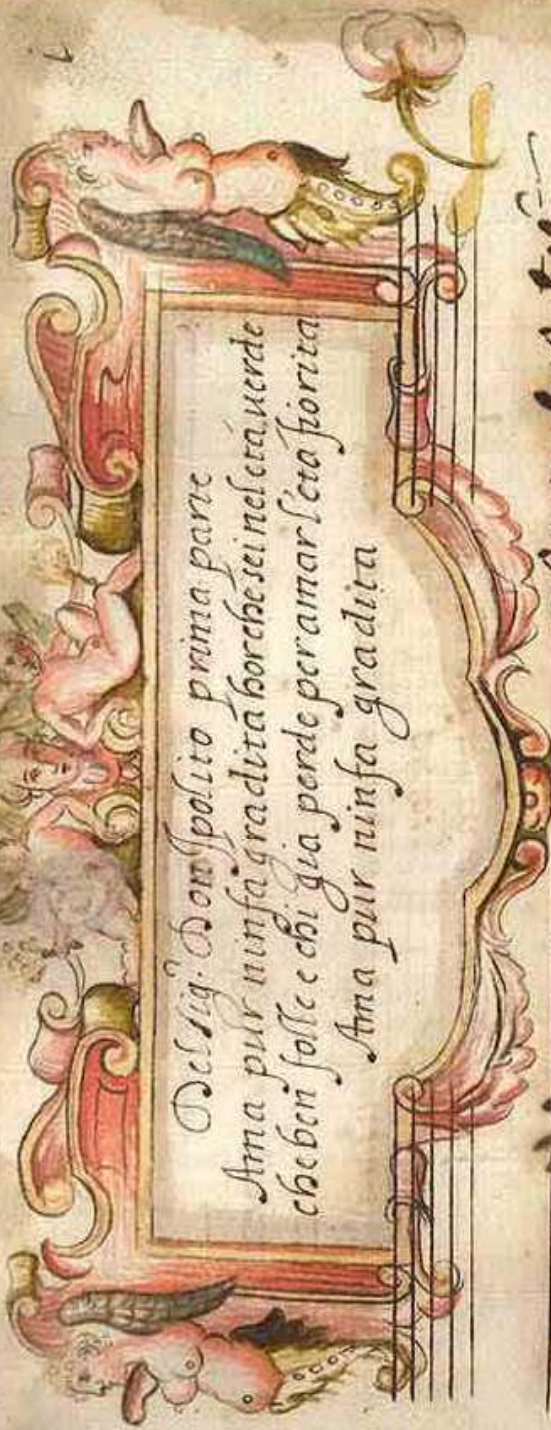 Del sig.r Don Ipolito prima parte
Ama pur ninfa gradita hor che sei nel etá uerde
che ben folle e chi gia perde per amar l'etá fiorita
Ama pur ninfa gradita